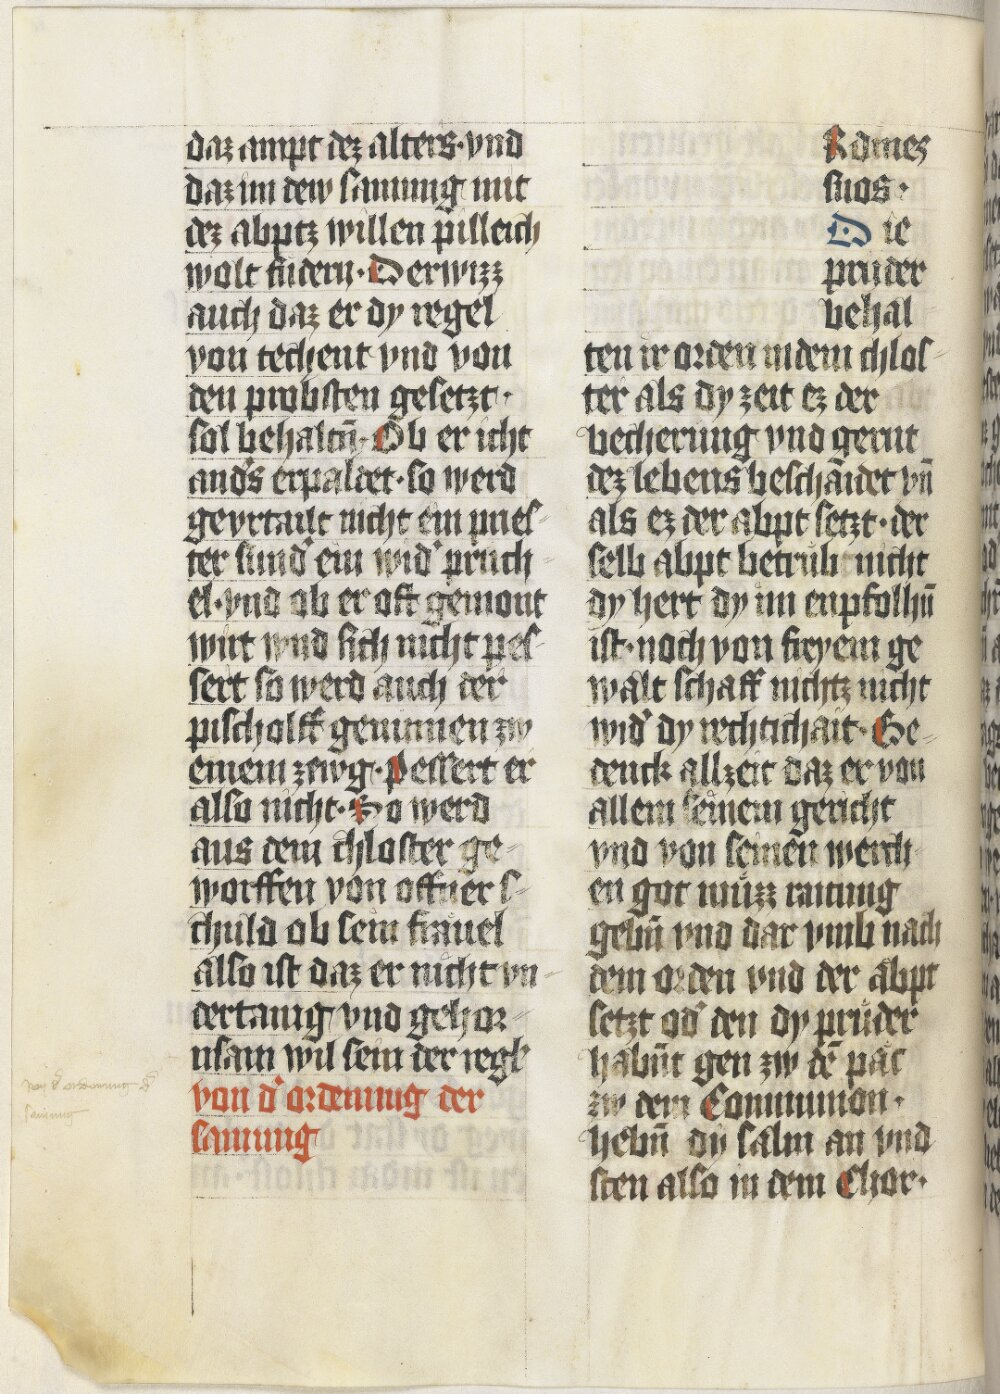 daz ampt dez alters · vnd
daz im dew samung mit
dez abptz willen pilleich
wolt fudern · Der wizz
auch daz er dy regel
von techent vnd von
den probsten gesetzt ·
sol behaltn̄ · Ob er icht
and's erpaldet · so werd
gevrtailt nicht ein pries-
ter sund' ein wid' pruch-
el · vnd ob er oft gemont
wirt wnd sich nicht pes-
sert so werd auch der
pischolff genumen zw
einem zewg · Pessert er
also nicht · So werd
aus dem chloster ge-
worffen von offner s-
chuld ob sein frauel
also ist daz er nicht vn-
dertanig vnd gehor-
nsam wil sein der regl
von d' ordenung der
samung
von d' ordenung d'
samung
Ramez
suos ·
Die
pruder
behal
ten ir orden in dem chlos-
ter als dy zeit ez der
becherung vnd gernt
dez lebens beschaidet vn̄
als ez der abpt setzt · der
selb abpt betrub nicht
dy hert dy im enpfolhn̄
ist · noch von freyem ge
walt schaff nichtz nicht
wid' dy rechtichait · Ge-
denck allzeit daz er von
allem seinem gericht
vnd von seinen̄ werch
en got muzz raitung
gebn̄ vnd dar vmb nach
dem orden vnd der abpt
setzt od' den dy prüder
habn̄t gen zw de᷑ pac
zw dem Communion ·
hebn̄ dy salm an vnd
sten also in dem Chor ·